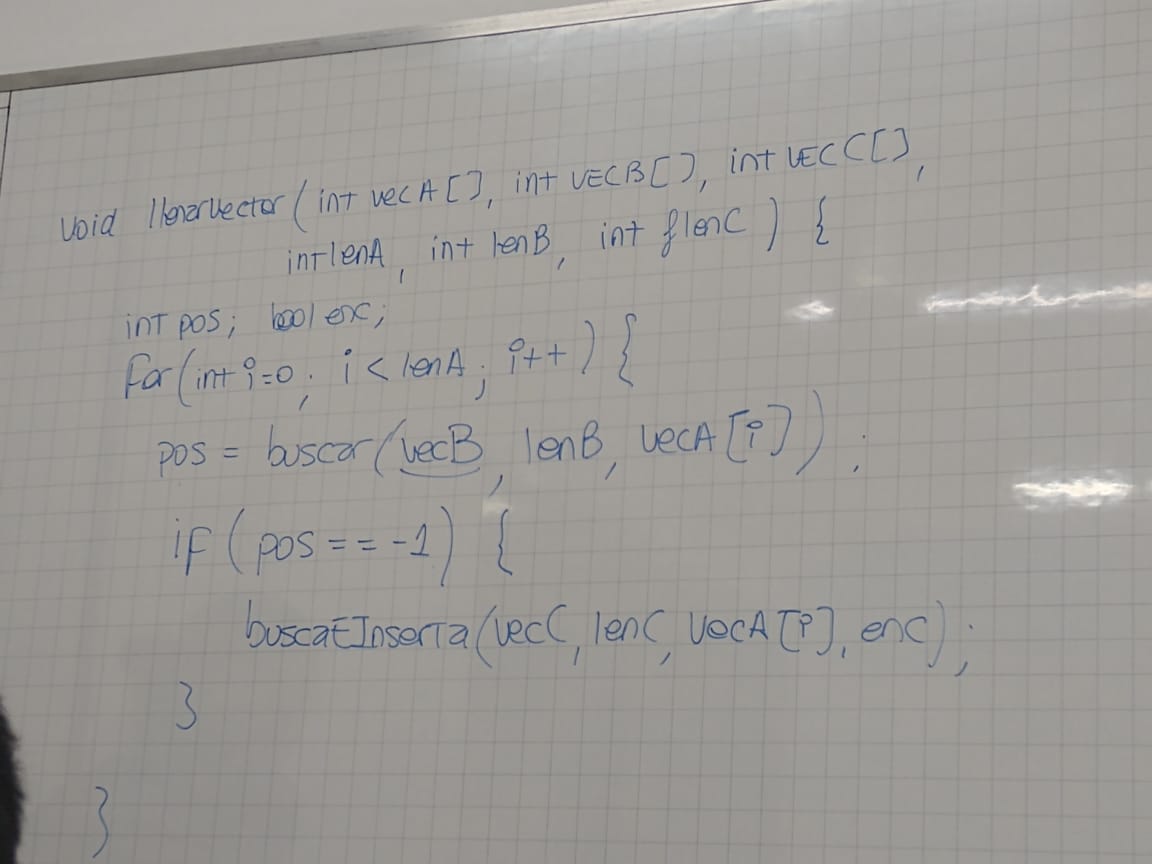 void llenarVector(int vecA[], int VECB[], int VECC[],
int lenA, int lenB, int &lenC) {
int pos; bool enc;
for(int i=0; i < lenA; i++) {
pos = buscar(vecB, lenB, vecA[i]);
if(pos == -1) {
buscaEInserta(vecC, lenC, vecA[i], enc);
}
}